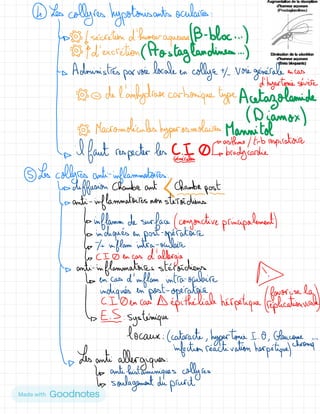 Augmentation de la résorption
d'humeur aqueuse
(Prostaglandines)
④ Les collyres hypotonisants oculaires:
↓ sécrétion d'humeur aqueuse (β-bloc...)
Diminution de la sécrétion
d'humeur aqueuse
(Bêta bloquants)
↑ d'excrétion (Prostaglandines...)
Administrés par voie locale en collyre % Voie générale en cas
d'hypertonie sévère
⊖ de l'anhydrase carbonique type Acétazolamide
(Diamox)
Macromolécules hyperosmolaires Mannitol
Il faut respecter les C I ∅ asthme / trb respiratoire
bradycardie
⑤ Les collyres anti-inflammatoires:
diffusion Chambre ant < Chambre post
anti-inflammatoires non stéroïdiens
inflamm de surface (conjonctive principalement)
indiqués en post-opératoire
% inflam intra-oculaire
C I ∅ en cas d'allergie
anti-inflammatoires stéroïdiens
en cas d'inflam intra oculaire
indiqués en post-opératoire
C.I ∅ en cas Δ épithéliale herpétique (favorise la
réplication virale)
E.S systémique
locaux: (cataracte, hypertonie I.O, Glaucome chronq
infection réactivation herpétique)
Les anti allergiques:
anti-histaminiques collyres
soulagement du prurit
Made with Goodnotes